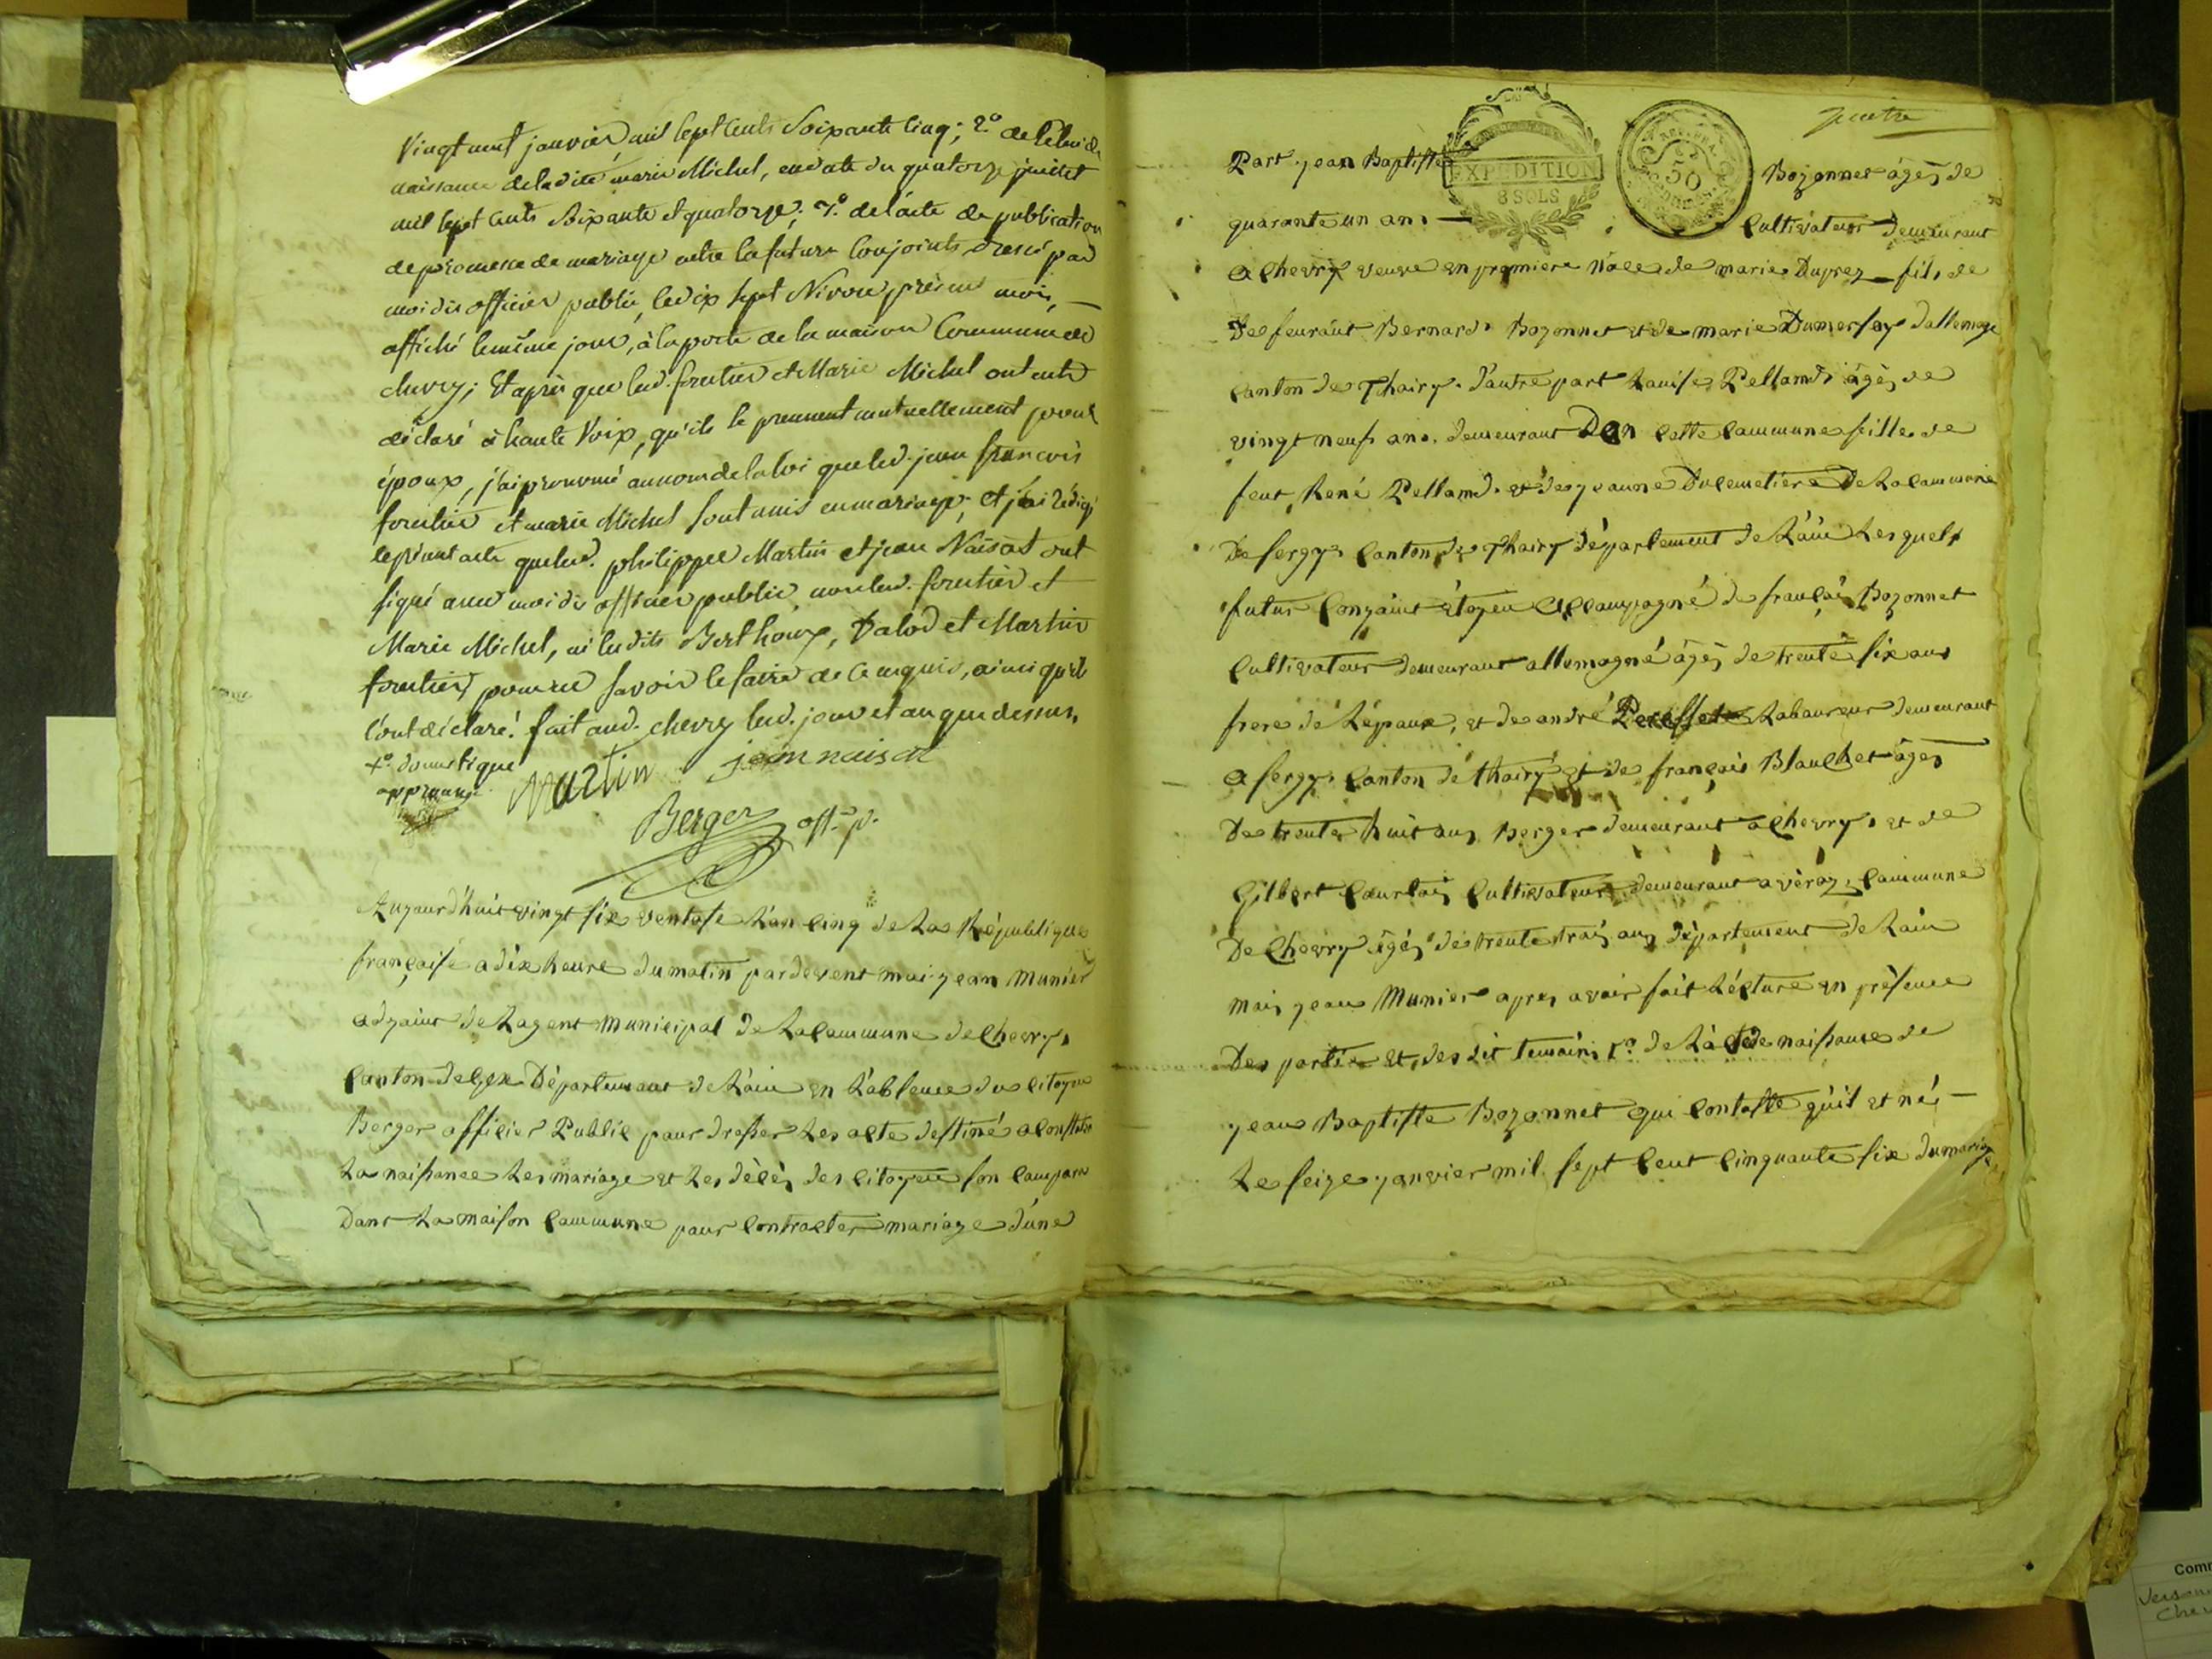 vingt neuf janvier mil sept cents soixante cinq; 2.º de celui de
naissance de ladite marie Michel, en date du quatorze juillet
mil sept cents soixante et quatorze; 3.º de l'acte de publication
de promesse de mariage entre les futurs conjoints dressé par
moi dit officier public, le dix sept Nivose présent mois, —
affiché le même jour, à la porte de la maison Commune de
chevry; Et après que led. forestier et Marie Michel ont eut
déclaré à haute voix, qu'ils se prennent mutuellement pour
époux, j'ai prononcé au nom de la loi que led. jean françois
forestier et marie Michel sont unis en mariage; et j'ai rédigé
le présent acte que led. philippe Martin et jean Naisot ont
signé avec moi dit officier public, non led. forestier et
Marie Michel, ni lesdits Berthoux, et Martin
forestier, pour ne savoir le faire de ce requis, ainsi qu'ils
l'ont déclaré. fait aud. chevry led. jour et an que dessus,
+º domestique
approuvé
Martin jean naisot
Berger off. p.
Aujaurd'huit vingt six ventose L'an cinq de La République
française a dix heure du matin par devent moi jean Munier
adjoint de Lagent Municipal de La commune de Chevry,
Canton de Gex Département de L'ain en L'absence du citoyen
Berger officier Public pour dresser Les acte destiné a constater
La naissance Les mariage et Les décès des citoyen son comparu
Dans La maison commune pour contracter mariage d'une
EXPEDITION
8 SOLS
50
Part jean Baptiste Bozonnet âgés de
quarante un ans — Cultivateur demeurant
a Chevry veuve en premiere nôce de marie Duprez fils de
De feu Bernard Bozonnet et de marie Dumersay dallemogne
Canton de Thoiry d'autre part Louise Pelland âgés de
vingt neuf ans demeurant Den cette commune fille de
feut René Pelland et de jeanne Ducemetiere De La commune
De sergy Canton de Thoiry département de L'ain Lesquels
futur conjoint étoyen accompagné de françois Bozonnet
Cultivateur demeurant allemogne âgés de trente six ans
frere de L'épaux, et de andré Labaureur demeurant
a sergy Canton de thoiry et de françois Blanchet âgés
De trente huit ans Berger demeurant a Chevry, et de
Gilbert Courtois Cultivateur demeurant a véraz, commune
De Chevry âgés de trente trois ans département de L'ain
Mois jeans Munier apres avoir fait Lécture en présence
Des partie et des dit temoins 1.º de L'acte de naissance de
jeans Baptiste Bozonnet qui contaste qu'il et né —
Le seize janvier mil sept cent cinquante six du mariage
Comm
Chev